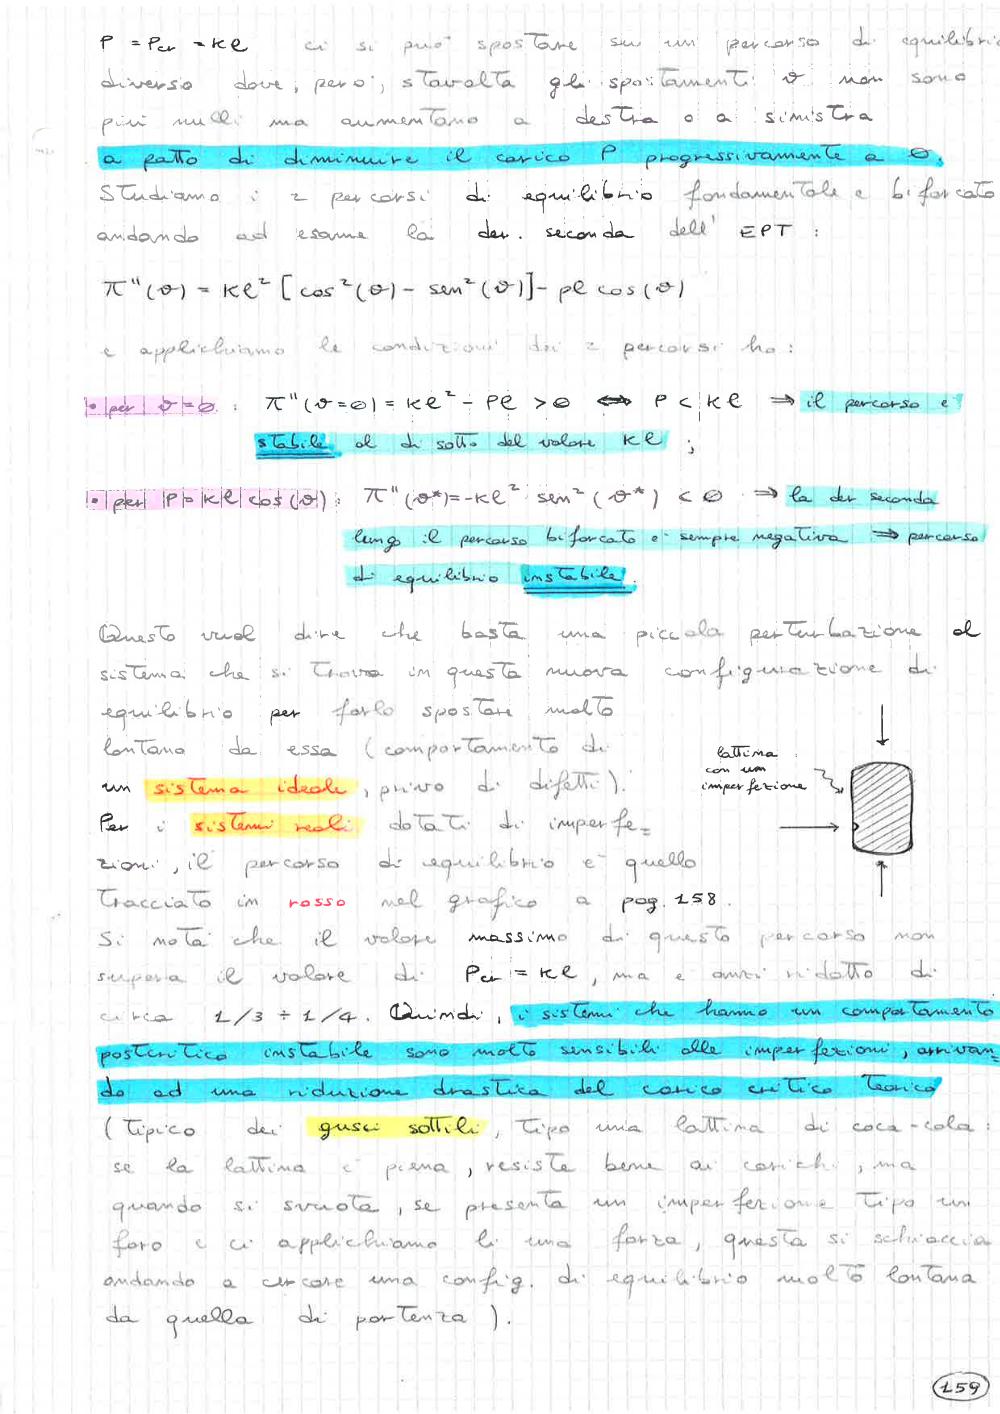 P = Pcr = Kl ci si può spostare su un percorso di equilibrio
diverso dove, però, stavolta gli spostamenti ϑ non sono
più nulli ma aumentano a destra o a sinistra
a patto di diminuire il carico P progressivamente a 0.
Studiamo i 2 percorsi di equilibrio fondamentale e biforcato
andando ad esame la der. seconda dell' EPT :
π"(ϑ) = Kl² [cos²(ϑ) - sen²(ϑ)] - pl cos(ϑ)
e applichiamo le condizioni dei 2 percorsi ho :
• per ϑ=0 : π"(ϑ=0) = Kl² - Pl > 0 ⇔ P < Kl ⇒ il percorso è
stabile al di sotto del valore Kl ;
• per P=Kl cos(ϑ) : π"(ϑ*) = -Kl² sen²(ϑ*) < 0 ⇒ la der seconda
lungo il percorso biforcato è sempre negativa ⇒ percorso
di equilibrio instabile.
Questo vuol dire che basta una piccola perturbazione al
sistema che si trova in questa nuova configurazione di
equilibrio per farlo spostare molto
lontano da essa (comportamento di
un sistema ideale, privo di difetti).
Per i sistemi reali dotati di imperfe=
zioni, il percorso di equilibrio è quello
tracciato in rosso nel grafico a pag. 158.
lattina
con un
imperfezione
Si nota che il valore massimo di questo percorso non
supera il valore di Pcr = Kl, ma è anzi ridotto di
circa 1/3 ÷ 1/4. Quindi, i sistemi che hanno un comportamento
postcritico instabile sono molto sensibili alle imperfezioni, arrivan=
do ad una riduzione drastica del carico critico teorico
(tipico dei gusci sottili, tipo una lattina di coca-cola :
se la lattina è piena, resiste bene ai carichi, ma
quando si svuota, se presenta un imperfezione tipo un
foro e ci applichiamo lì una forza, questa si schiaccia
andando a cercare una config. di equilibrio molto lontana
da quella di partenza).
159